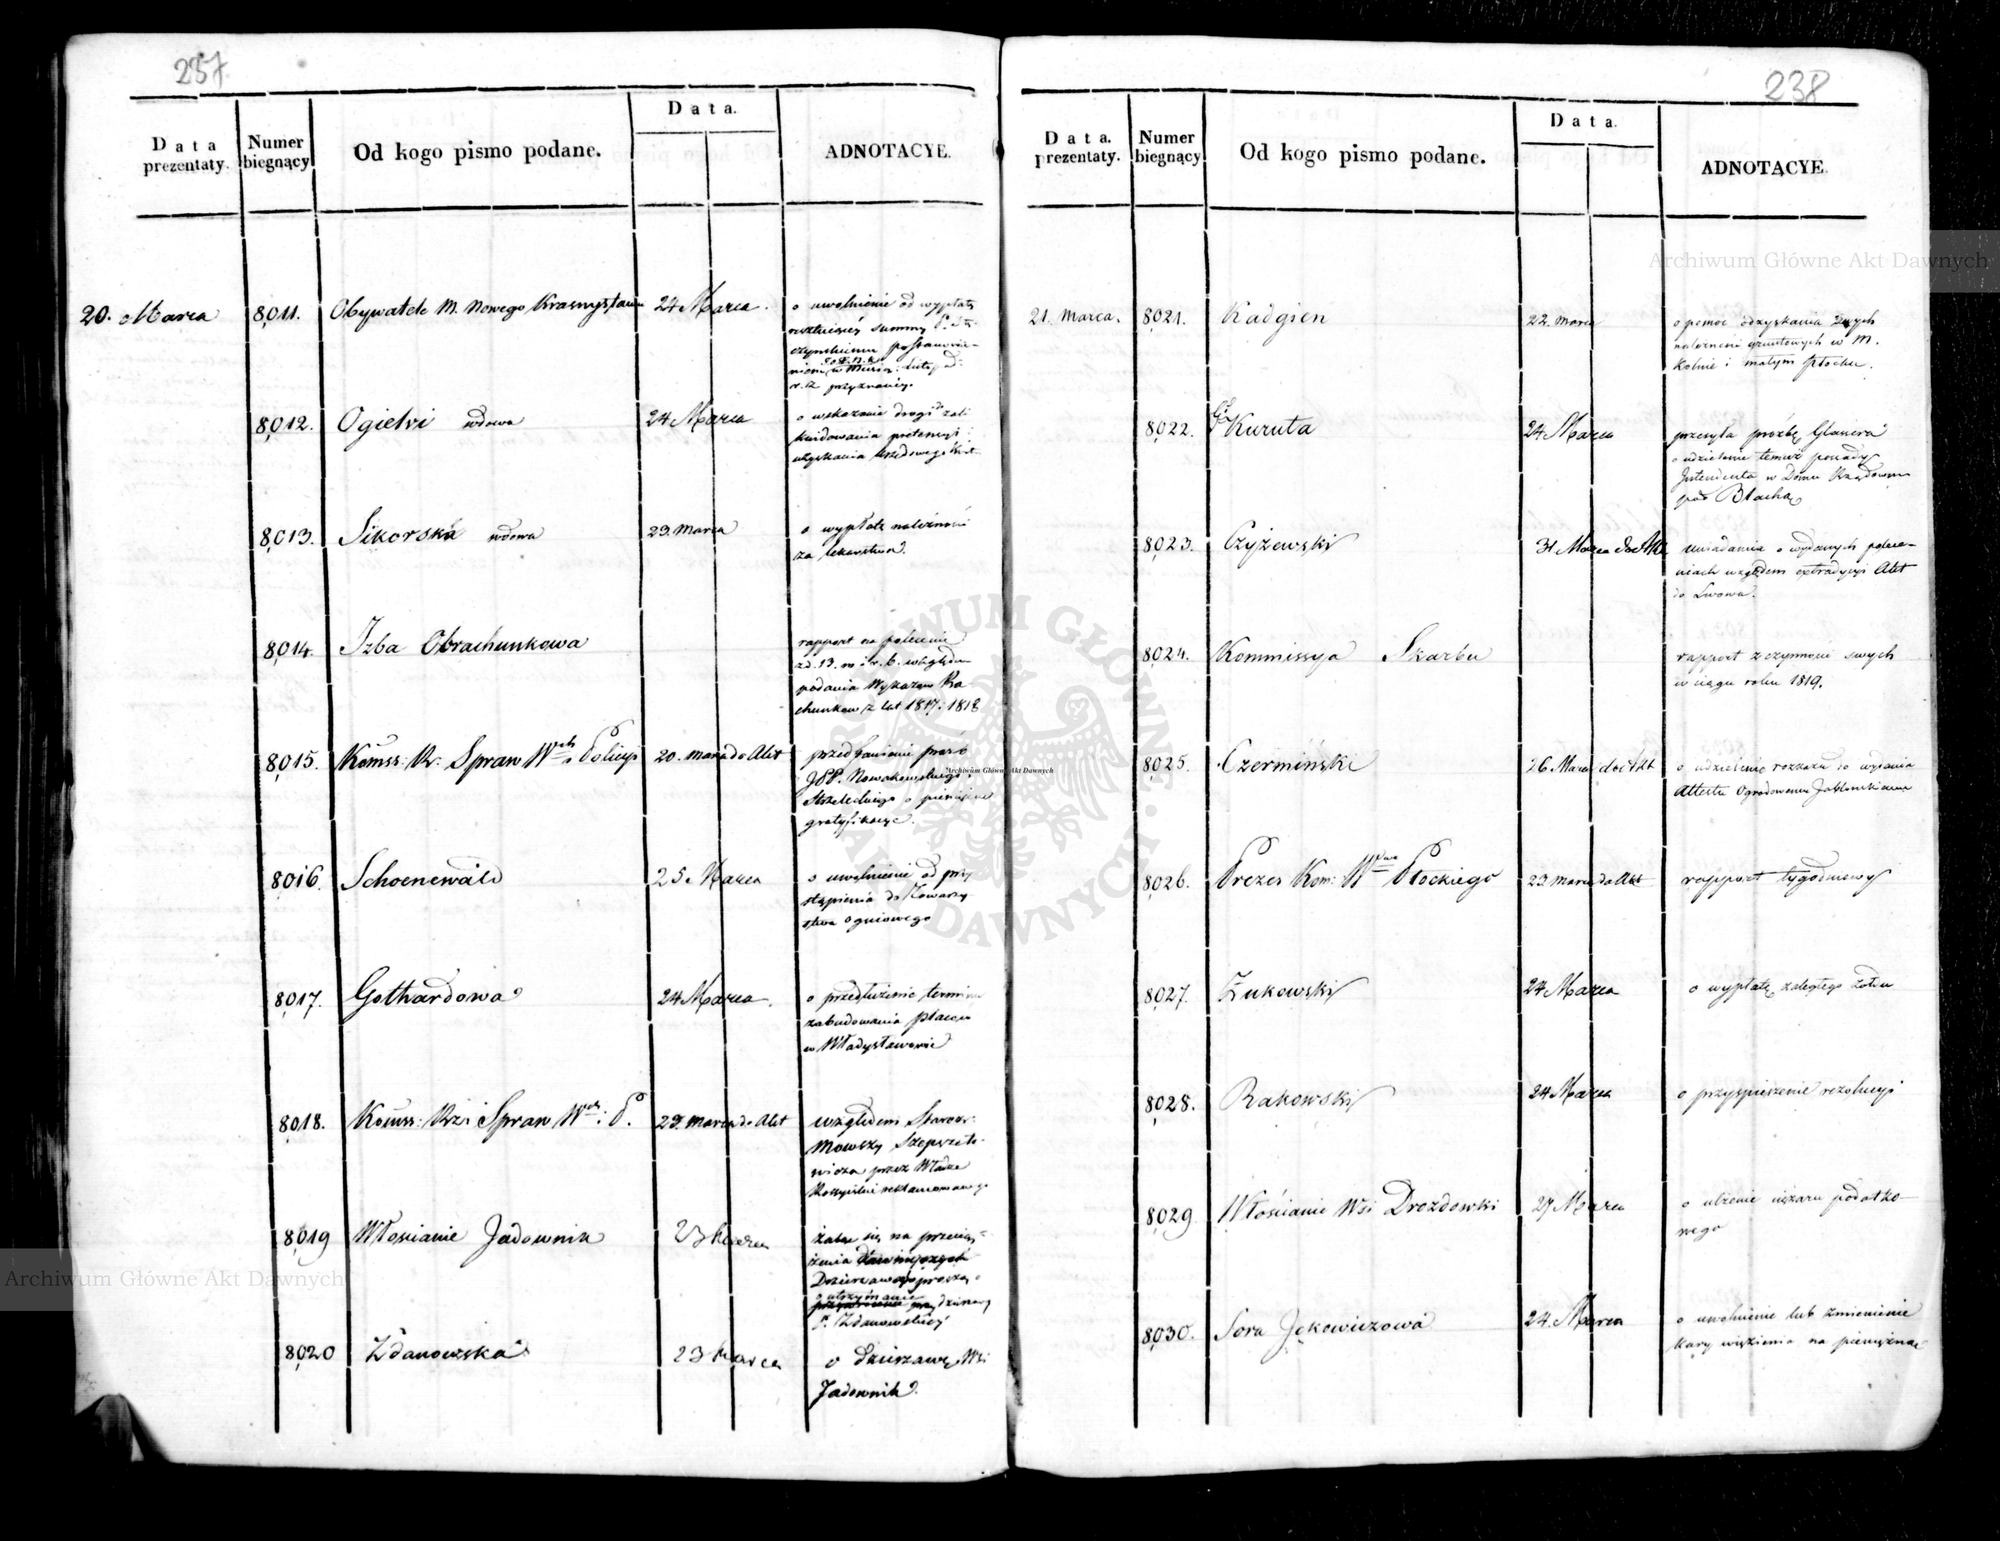 237
Data prezentaty.
Numer biegnący
Od kogo pismo podane.
Data.
ADNOTACYE.
20. Marca
8011.
Obywatele M. Nowego Krasnegstawu
24 Marca.
o uwolnienie od wypłaty
summy
przyznaney.
8012.
Ogielvi wdowa
24 Marca
o wskazanie drogi do zali
kwidowania pretensyi i
uzyskania
8013.
Sikorska wdowa
23. Marca
o wypłatę należności
za lekarstwa.
8014.
Izba Obrachunkowa
rapport na polecenie
z d. 13. m. i r. b. względem
podania Wykazów Ra
chunków z lat 1817 i 1818
8015.
Kommss: Rz. Spraw Wch i Policyi
20. Marca do Akt
przedstawienie prośb
JPP. Nowakowskiego i
Strzeleckiego o pieniężne
gratyfikacye.
8016.
Schoenewald
25 Marca
o uwolnienie od przy
stąpienia do Towarzy
stwa ogniowego
8017.
Gothardowa
24 Marca.
o przedłużenie terminu
zabudowania placu
w Władysławowie
8018.
Kommss: Rz: Spraw Wch: P.
29. Marca do Akt
względem
przez Władze
Rossyiskie reklamowanego
8019
Włościanie Jadownik
23 Marca
żalą się na przecią-
żenia
o utrzymanie
P. Zdanowskiey
8020
Zdanowska
23 Marca
o dzierżawę Wsi
Jadownik.
238
Data. prezentaty.
Numer biegnący
Od kogo pismo podane.
Data.
ADNOTACYE.
21. Marca.
8021.
Radgien
22. Marca
o pomoc odzyskania
należności gruntowych w M.
Kolnie i małym Płocku.
8022.
Kuruta
24 Marca
przesyła prożbę Glasera
o udzielenie temuż posady
Intendenta w Domu Rządowem
pod Blachą
8023.
Czyżewski
31 Marca do Akt
uwiadamia o wydanych polece-
niach względem extradycyi Akt
do Lwowa.
8024.
Kommissya Skarbu
rapport z czynności swych
w ciągu roku 1819.
8025.
Czermiński
26 Marca do Akt
o udzielenie rozkazu do wydania
Attestu Ogrodowemu Jabłonskiemu
8026.
Prezes Kom: Wdztwa Płockiego
23 marca do Akt
rapport tygodniowy
8027.
Żukowski
24 Marca
o wypłatę zaległego żołdu
8028.
Rakowski
24 Marca
o przyspieszenie rezolucyi
8029
Włościanie Wsi Drozdowki
27 Marca
o ulżenie ciężaru podatko-
wego
8030.
Sora Jękowiczowa
24. Marca
o uwolnienie lub zmienienie
kary więzienia na pieniężną
Archiwum Główne Akt Dawnych
Archiwum Główne Akt Dawnych
Archiwum Główne Akt Dawnych
ARCHIWUM GŁÓWNE AKT DAWNYCH